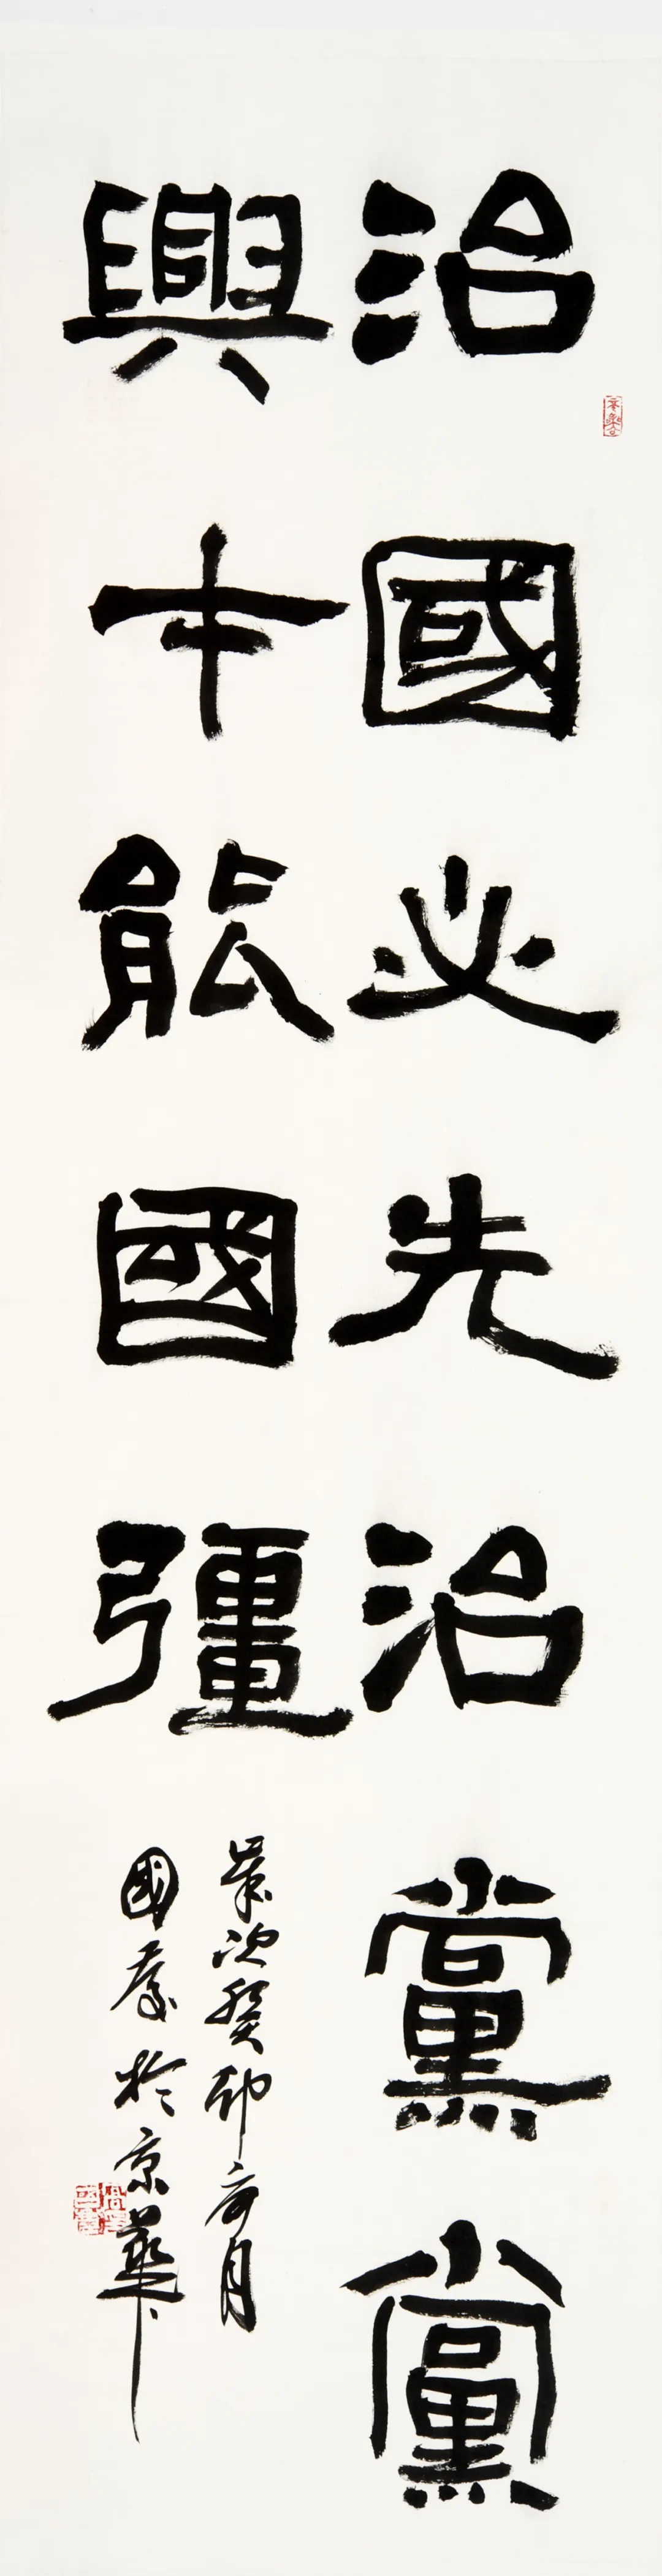 治國必先治黨黨
興才能國彊
歲次癸卯亥月
國慶於京華